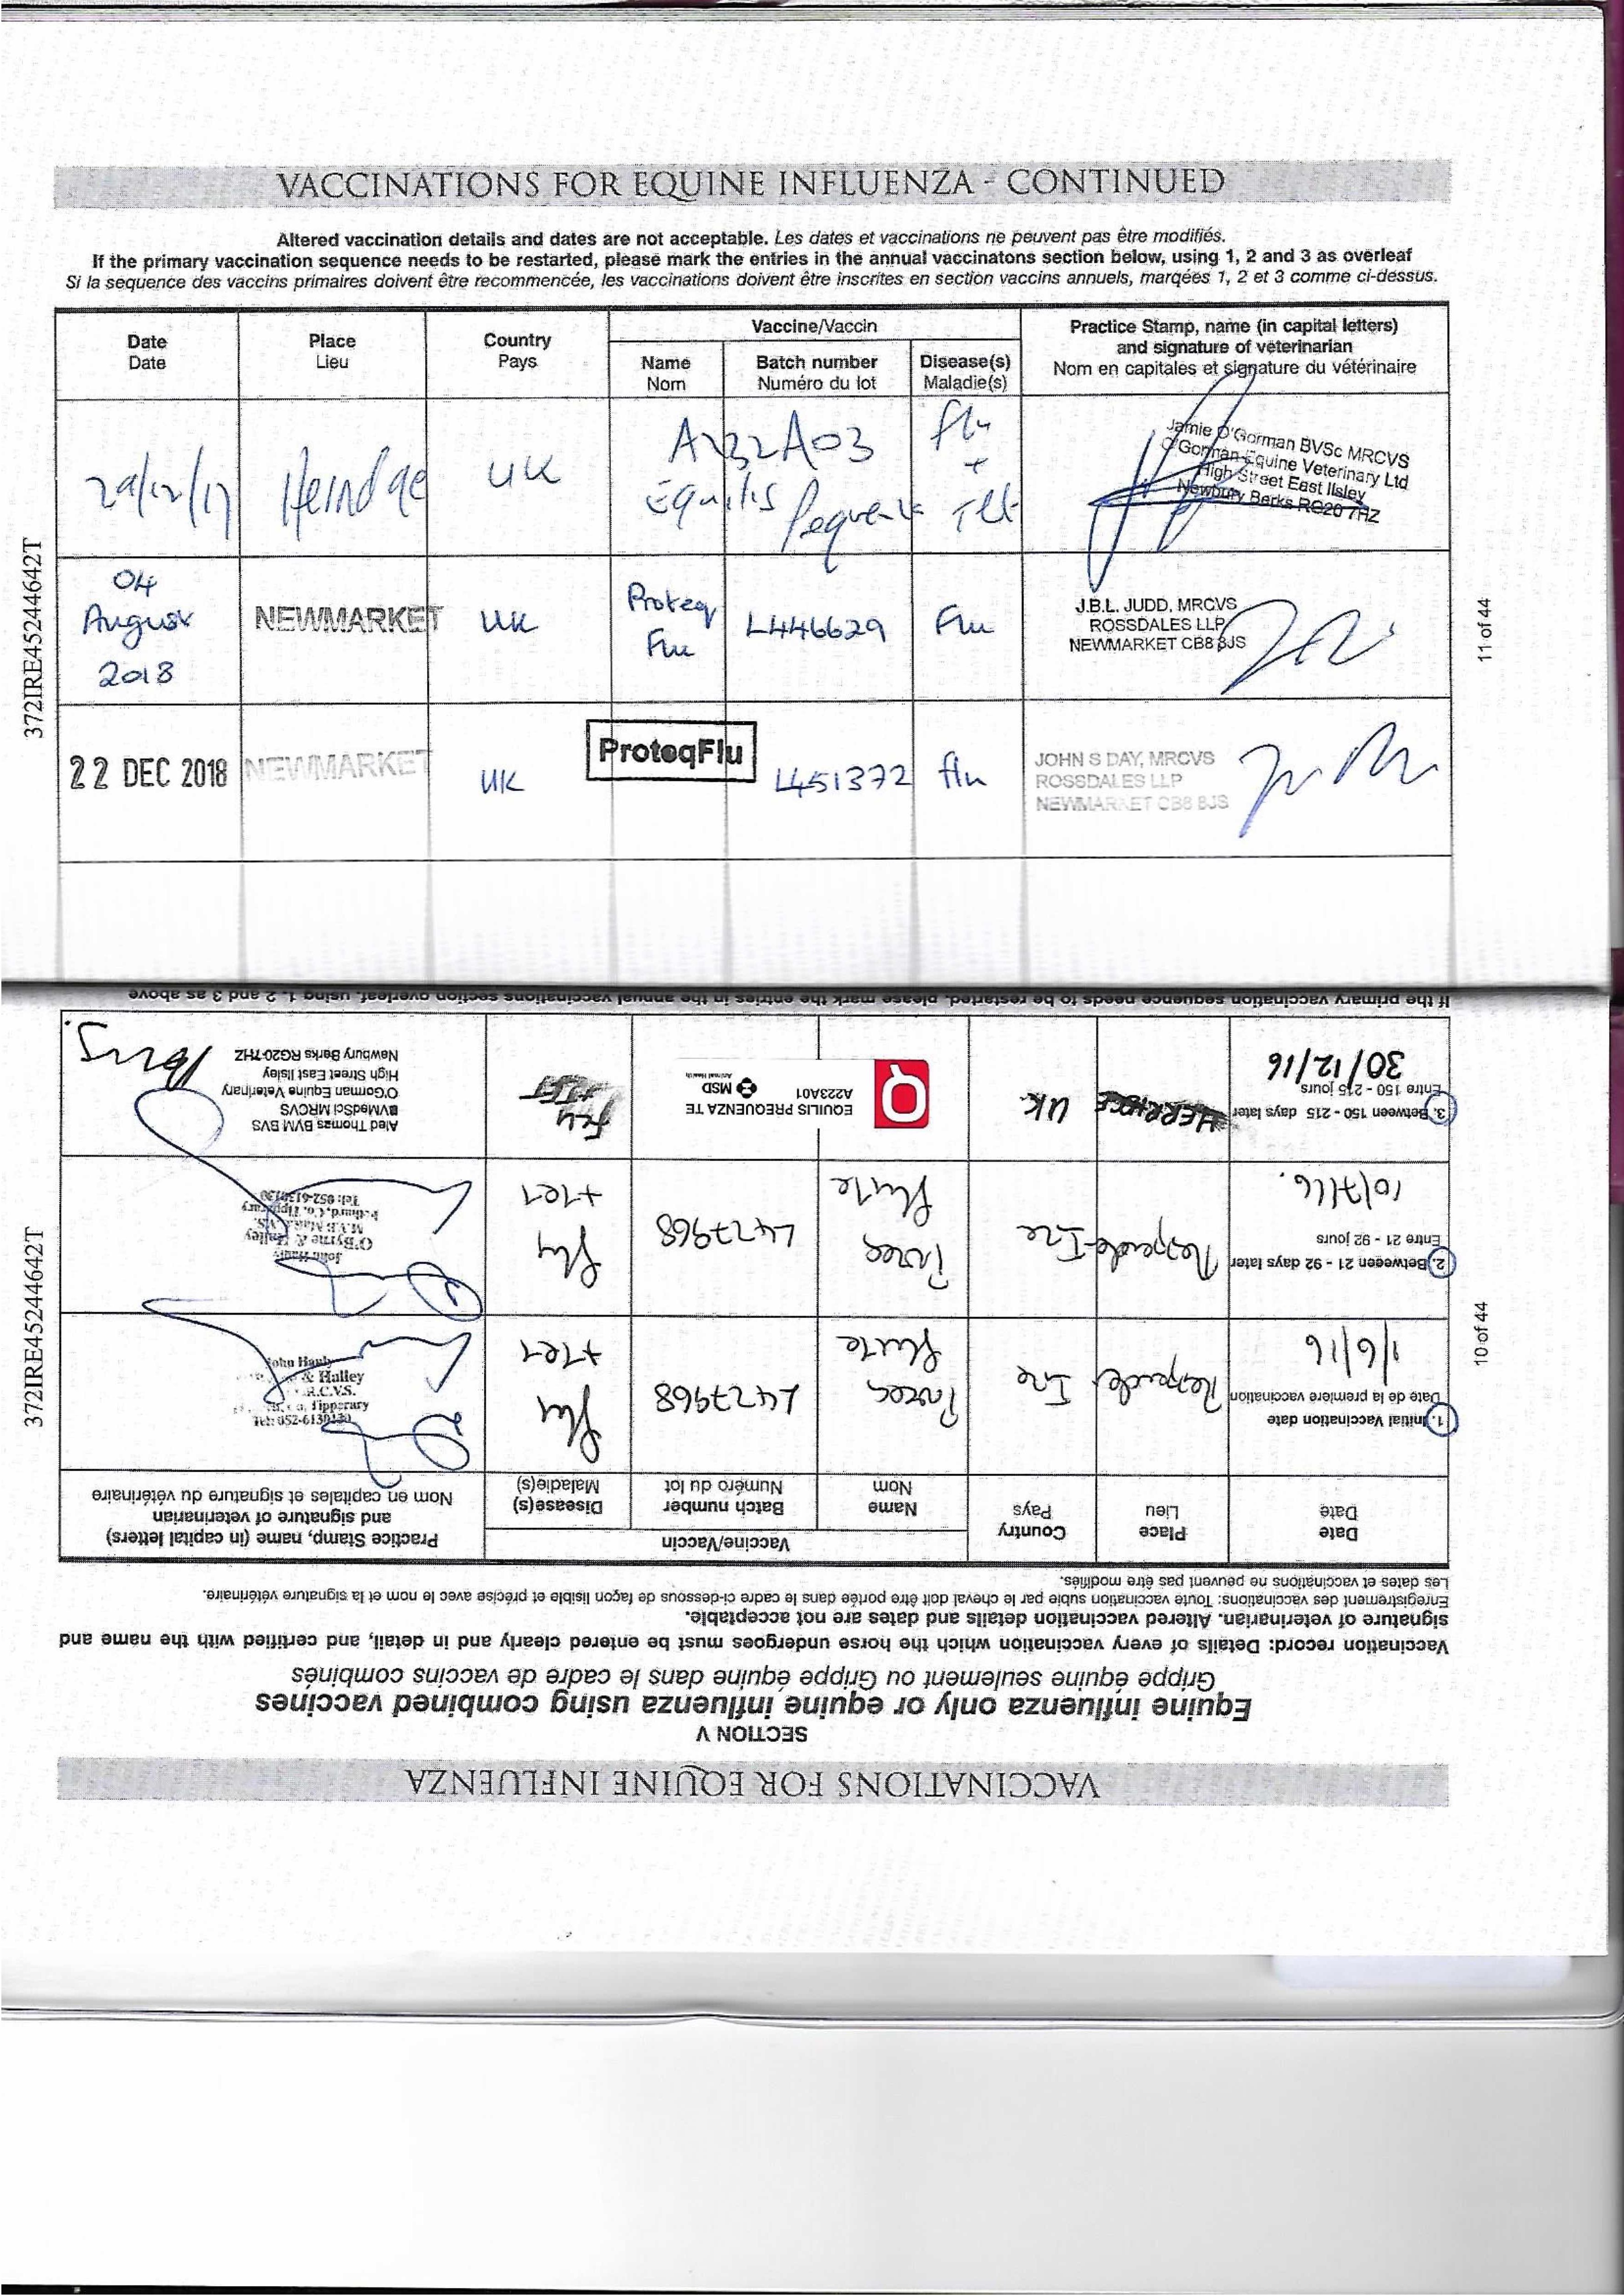 VACCINATIONS FOR EQUINE INFLUENZA - CONTINUED
Altered vaccination details and dates are not acceptable. Les dates et vaccinations ne peuvent pas être modifiés.
If the primary vaccination sequence needs to be restarted, please mark the entries in the annual vaccinatons section below, using 1, 2 and 3 as overleaf
Si la sequence des vaccins primaires doivent être recommencée, les vaccinations doivent être inscrites en section vaccins annuels, marqées 1, 2 et 3 comme ci-dessus.
Date
Date
Place
Lieu
Country
Pays
Vaccine/Vaccin
Name
Nom
Batch number
Numéro du lot
Disease(s)
Maladie(s)
Practice Stamp, name (in capital letters)
and signature of veterinarian
Nom en capitales et signature du vétérinaire
UK
A232A03
Equilis
Flu
+
Tet
Jamie O'Gorman BVSc MRCVS
O'Gorman Equine Veterinary Ltd
High Street East Ilsley
Newbury Berks RG20 7HZ
04
August
2018
NEWMARKET
UK
Proteq
Flu
L446629
Flu
J.B.L. JUDD, MRCVS
ROSSDALES LLP
NEWMARKET CB8 8JS
22 DEC 2018
NEWMARKET
UK
ProteqFlu
L451372
flu
JOHN S DAY, MRCVS
ROSSDALES LLP
NEWMARKET CB8 8JS
372IRE45244642T
11 of 44
VACCINATIONS FOR EQUINE INFLUENZA
SECTION V
Equine influenza only or equine influenza using combined vaccines
Grippe équine seulement ou Grippe équine dans le cadre de vaccins combinés
Vaccination record: Details of every vaccination which the horse undergoes must be entered clearly and in detail, and certified with the name and
signature of veterinarian. Altered vaccination details and dates are not acceptable.
Enregistrement des vaccinations: Toute vaccination subie par le cheval doit être portée dans le cadre ci-dessous de façon lisible et précise avec le nom et la signature vétérinaire.
Les dates et vaccinations ne peuvent pas être modifiés.
Date
Date
Place
Lieu
Country
Pays
Vaccine/Vaccin
Name
Nom
Batch number
Numéro du lot
Disease(s)
Maladie(s)
Practice Stamp, name (in capital letters)
and signature of veterinarian
Nom en capitales et signature du vétérinaire
1. Initial Vaccination date
Date de la première vaccination
1/6/16
Ire
L427968
Flu
+Tet
John
& Halley
R.C.V.S.
Tipperary
Tel: 052-6130130
2. Between 21 - 92 days later
Entre 21 - 92 jours
10/7/16.
Ire
L427968
Flu
+Tet
O'Byrne & Halley
Fethard, Co. Tipperary
Tel: 052-6130130
3. Between 150 - 215 days later
Entre 150 - 215 jours
30/12/16
HERRIDGE
UK.
EQUILIS PREQUENZA TE
A223A01
MSD
Animal Health
FLU
+TET
Aled Thomas BVM BVS
BVMedSci MRCVS
O'Gorman Equine Veterinary
High Street East Ilsley
Newbury Berks RG20 7HZ
If the primary vaccination sequence needs to be restarted, please mark the entries in the annual vaccinations section overleaf, using 1, 2 and 3 as above
372IRE45244642T
10 of 44